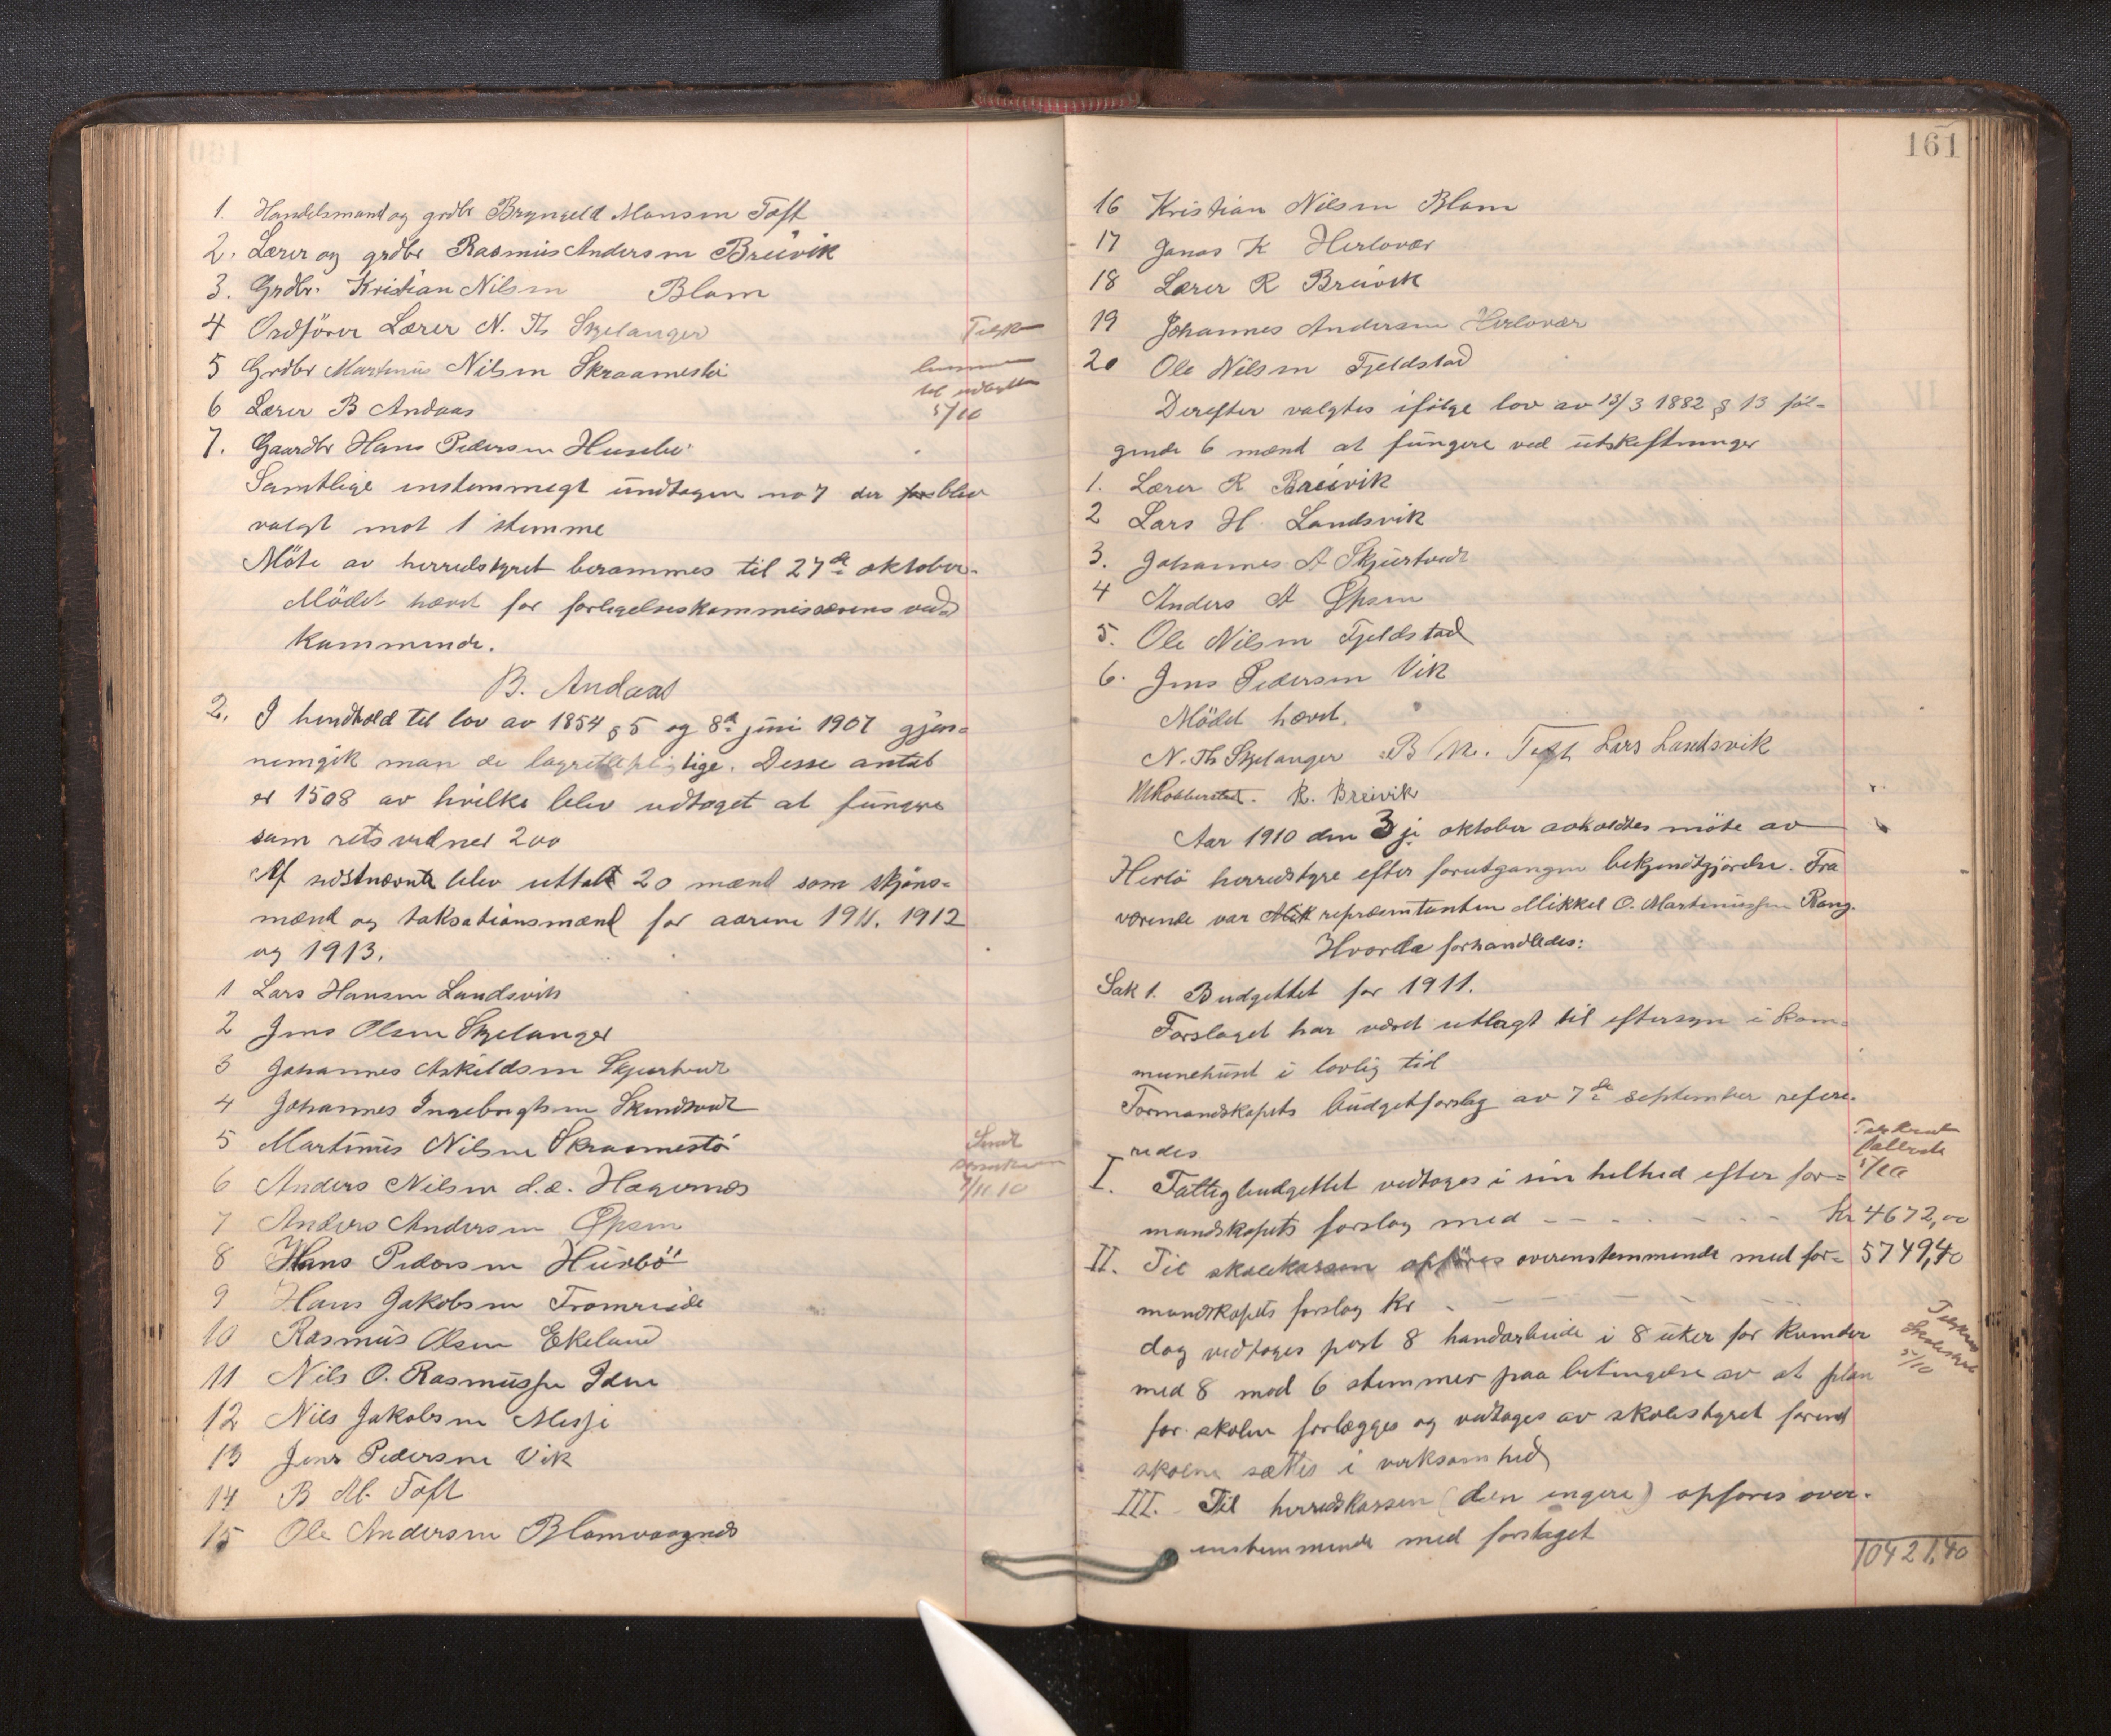 1. Handelsmand og grdbr Bryngeld Monsen Toft
2. Lærer og grdbr Rasmus Andersen Breivik
3. Grdbr. Kristian Nilsen Blom
4 Ordfører Lærer N. Th Skjelanger
5 Grdbr Martinus Nilsen Skraamestø
6 Lærer B Andaas
7. Gaardbr Hans Pedersen Husebø
Samtlige enstemmegt undtagen no 7 der blev
valgt mot 1 stemme
Møte av herredstyret berammes til 27de oktober.
Mödet hævet for forligelseskommissærens ved
kommende.
B. Andaas
2. I henhold til lov av 1854 § 5 og 8de juni 1907 gjen=
nemgik man de lagrettepligtige. Desse antal
er 1508 av hvilke blev udtaget at fungere
som retsvidner 200
Af sidstnævnte blev uttatt 20 mænd som skjøns=
mænd og taksationsmænd for aarene 1911. 1912
og 1913.
1 Lars Hansen Landsvik
2 Jens Olsen Skjelanger
3 Johannes Askildsen Skjurtveit
4 Johannes Ingebrigtsen
5 Martinus Nilsen Skraamestø
6 Anders Nilsen d.e. Hagernes
7 Anders Andersen Opsen
8 Hans Pedersen Husebö
9 Hans Jakobsen Tromreide
10 Rasmus Olsen Ekeland
11 Nils O. Rasmussen
12 Nils Jakobsen
13 Jens Pedersen Vik
14 B M. Toft
15 Ole Andersen Blomvaagnes
5/10
Sendt
7/11 10
161
16 Kristian Nilsen Blom
17 Jonas K Herlovær
18 Lærer R Breivik
19 Johannes Andersen Herlovær
20 Ole Nilsen Fjeldstad
Derefter valgtes ifølge lov av 13/3 1882 § 13 føl=
gende 6 mænd at fungere ved utskiftninger
1. Lærer R Breivik
2 Lars H. Landsvik
3. Johannes A Skjurtveit
4 Anders A Opsen
5. Ole Nilsen Fjeldstad
6. Jens Pedersen Vik
Mödet hævet.
N. Th Skjelanger B M. Toft Lars Landsvik
R. Breivik
Aar 1910 den 3je oktober avholdtes möte av
Herlö herredstyre efter forutgangen bekjendtgjörelse. Fra
værende var repræsentanten Mikkel O. Martinussen Rong.
Hvorda forhandledes:
Sak 1. Budgettet for 1911.
Forslaget har været utlagt til eftersyn i kom=
munehuset i lovlig tid
Formandskapets budgetforslag av 7de september refere-
redes
I. Fattigbudgettet vedtoges i sin helhed efter for=
mandskapets forslag med - - - - - Kr 4672,00
II. Til skolekassen opføres overenstemmende med for= 5749,40
mandskapets forslag kr - - - -
dog vedtoges post 8 handarbeide i 8 uker for kvinder
med 8 mod 6 stemmer paa betingelse av at plan
for skolen forlægges og vedtages av skolestyret forend
skolene sættes i verksomhed
III. Til herredskassen (den engere) opføres over-
enstemmende med forslaget
10421,40
5/10
Skolestyret
5/10